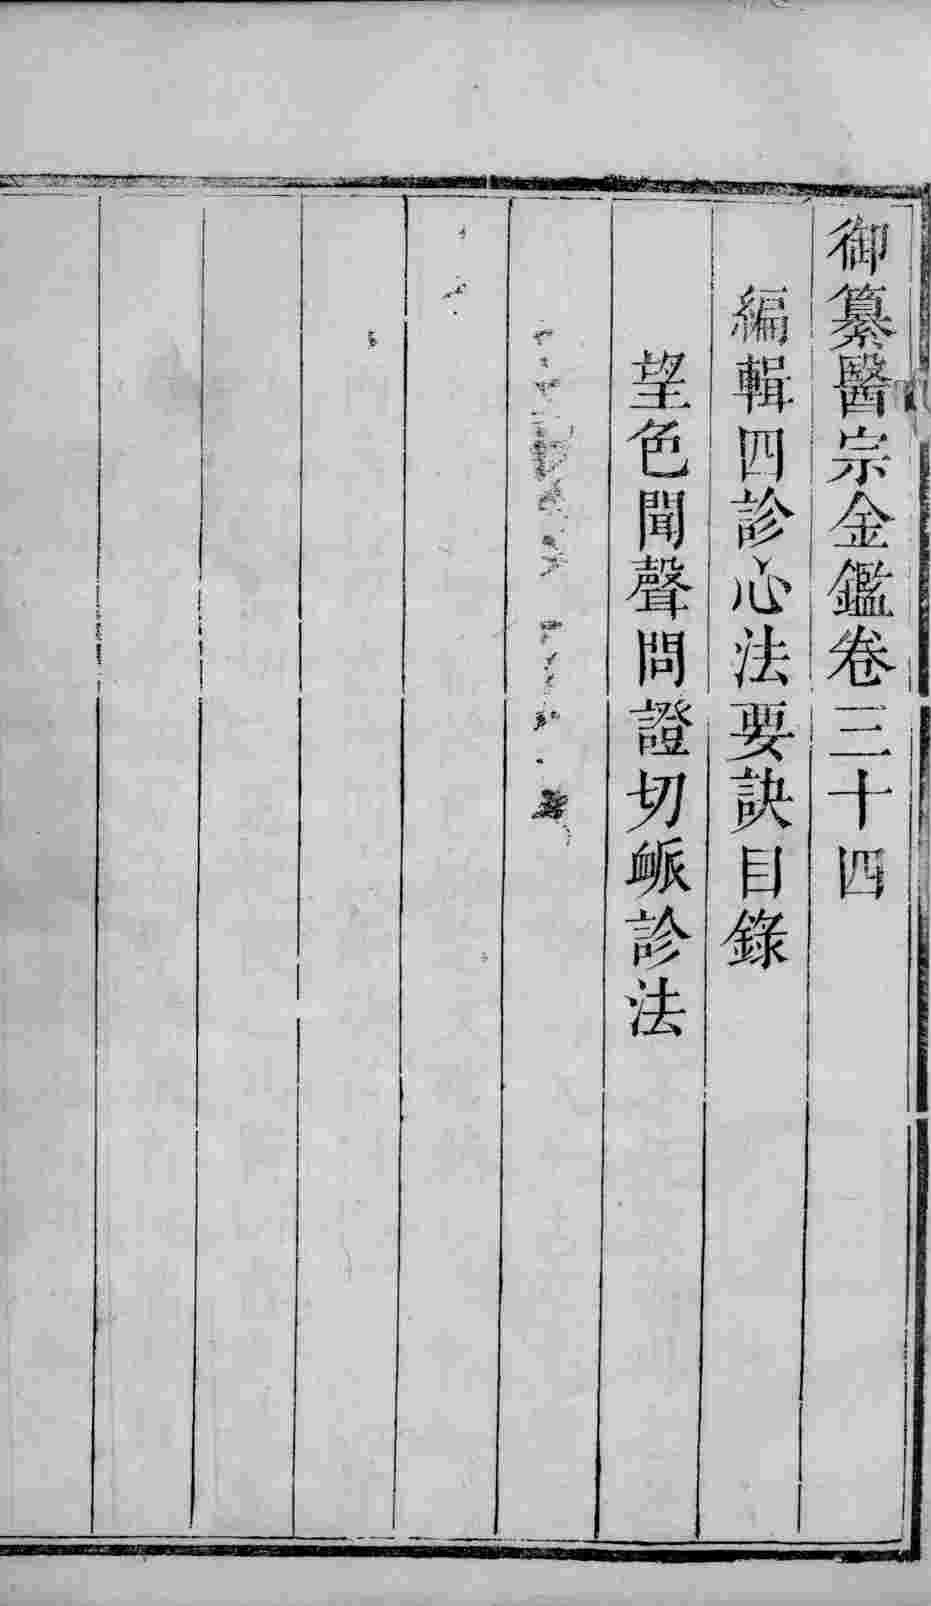 御纂醫宗金鑑卷三十四
編輯四診心法要訣目錄
望色聞聲問證切衇診法